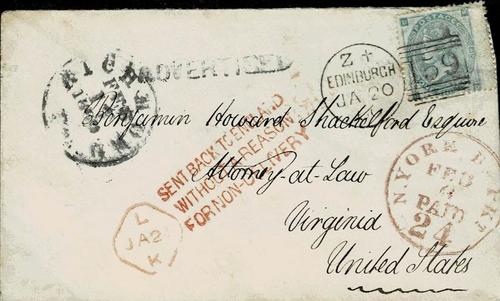 RICHMOND
ADVERTISED
Z +
EDINBURGH
JA 20
POSTAGE
159
Benjamin Howard Shackelford Esquire
SENT BACK TO ENGLAND
WITHOUT A REASON
FOR NON-DELIVERY
Attorney-at-Law
L
JA 2
K
N. YORK BR. PKT
FEB
PAID
24
Virginia
United States